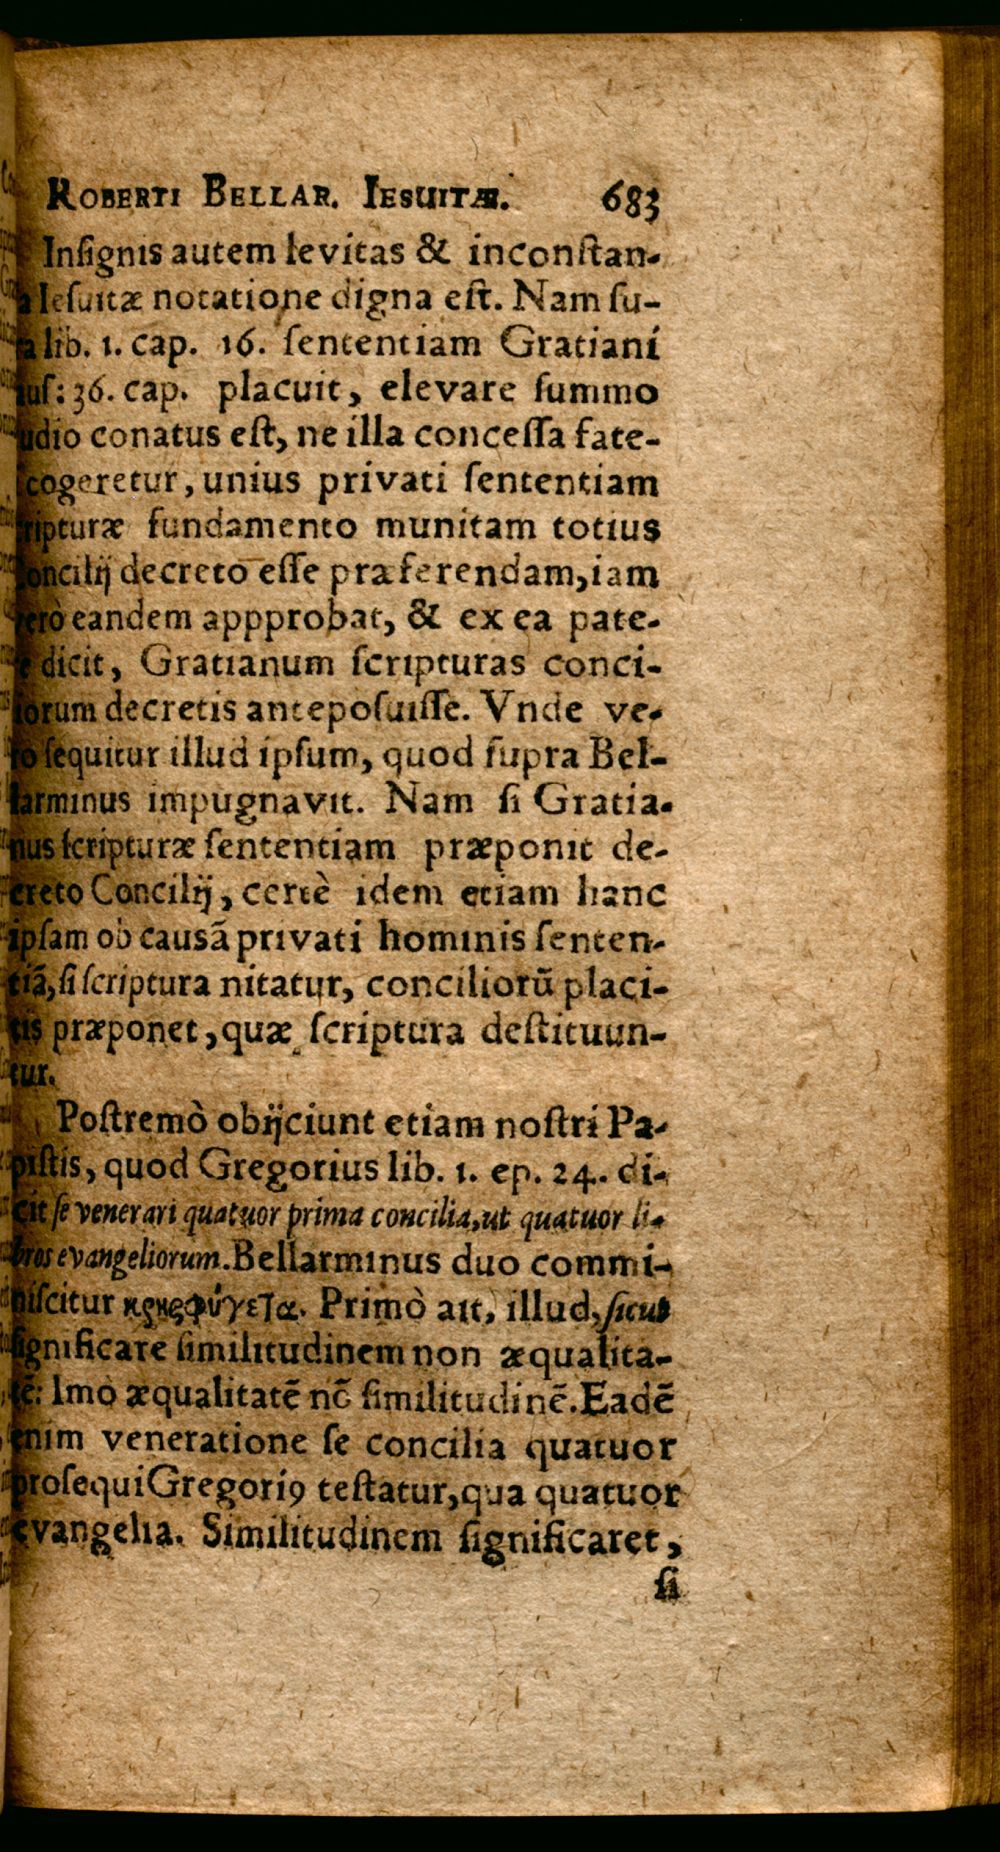 ROBERTI BELLAR. IESUITÆ. 683
Inſignis autem levitas & inconſtan-
a Ieſuitæ notatione digna eſt. Nam ſu-
a lib. 1. cap. 16. ſententiam Gratiani
auſ: 36. cap. placuit, elevare ſummo
udio conatus eſt, ne illa conceſſa fate-
cogeretur, unius privati ſententiam
ripturæ fundamento munitam totius
oncilij decreto eſſe præferendam, iam
erò eandem appprobat, & ex ea pate-
e dicit, Gratianum ſcripturas conci-
iorum decretis antepoſuiſſe. Vnde ve-
ro ſequitur illud ipſum, quod ſupra Bel-
larminus impugnavit. Nam ſi Gratia-
nus ſcripturæ ſententiam præponit de-
creto Concilij, certè idem etiam hanc
ipſam ob causã privati hominis ſenten-
tiã, ſi ſcriptura nitatur, conciliorũ placi-
tis præponet, quæ ſcriptura deſtituun-
tur.
Poſtremò obijciunt etiam noſtri Pa-
piſtis, quod Gregorius lib. 1. ep. 24. di-
cit ſe venerari quatuor prima concilia, ut quatuor li-
bros evangeliorum. Bellarminus duo commi-
niſcitur κρησφύγετα. Primò ait, illud, ſicut
ſignificare ſimilitudinem non æqualita-
tẽ: Imo æqualitatẽ nõ ſimilitudinẽ. Eadẽ
enim veneratione ſe concilia quatuor
proſequi Gregoriꝯ teſtatur, qua quatuor
evangelia. Similitudinem ſignificaret,
ſi